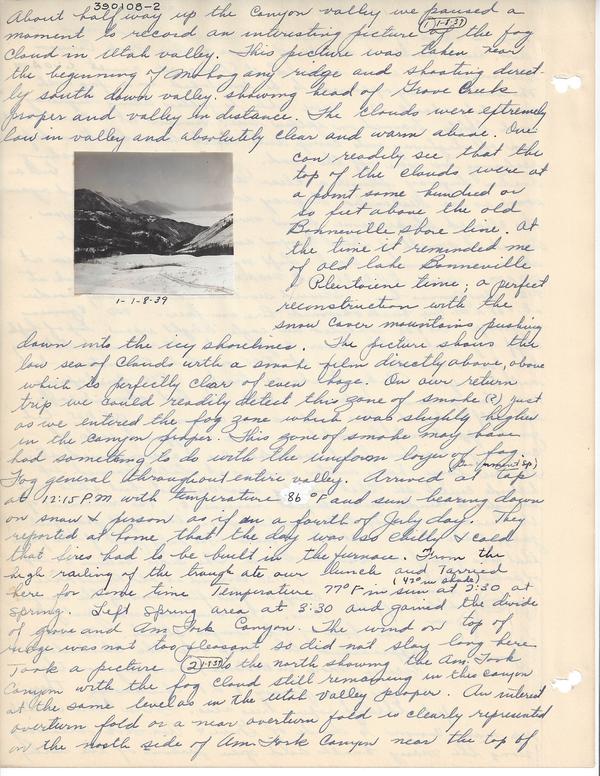 390108-2
About half way up the Canyon valley we paused a
moment to record an interesting picture 1 1-8-39 of the fog
cloud in Utah valley. This picture was taken near
the beginning of Mahogany ridge and shooting direct-
ly south down valley. showing head of Grove Creek
proper and valley in distance. The clouds were extremely
low in valley and absolutely clear and warm above. One
can readily see that the
top of the clouds were at
a point some hundred or
so feet above the old
Bonneville shore line. At
the time it reminded me
of old lake Bonneville
Pleistoiene time; a perfect
reconstruction with the
snow cover mountains pushing
1-1-8-39
down into the icy shorelines. The picture shows the
low sea of clouds with a smoke film directly above, above
which is perfectly clear of even haze. On our return
trip we could readily detect this zone of smoke (?) just
as we entered the fog zone which was slughly higher
in the canyon proper. This zone of smoke may have
had something to do with the uniform layer of fog.
Fog general throughout entire valley. Arrived at top
at 12:15 P.M with temperature 86 °F and sun bearing down
on snow & person as if on a fourth of July day. They
reported at home that the day was so chilly & cold
that fires had to be built in the furnace. From the
high railing of the trough ate our lunch and tarried
here for some time Temperature 77°F in sun (47° in shade) at 2:30 at
spring. Left spring area at 3:30 and gained the divide
of grove and Am. Fork Canyon. The wind on top of
ridge was not too pleasant so did not stay long here
Took a picture 2 1-8-39 to the north showing the Am. Fork
Canyon with the fog cloud still remaining in this canyon
at the same level as in the Utah Valley proper. An interest
overturn fold or a near overturn fold is clearly represented
on the north side of Am. Fork Canyon near the top of